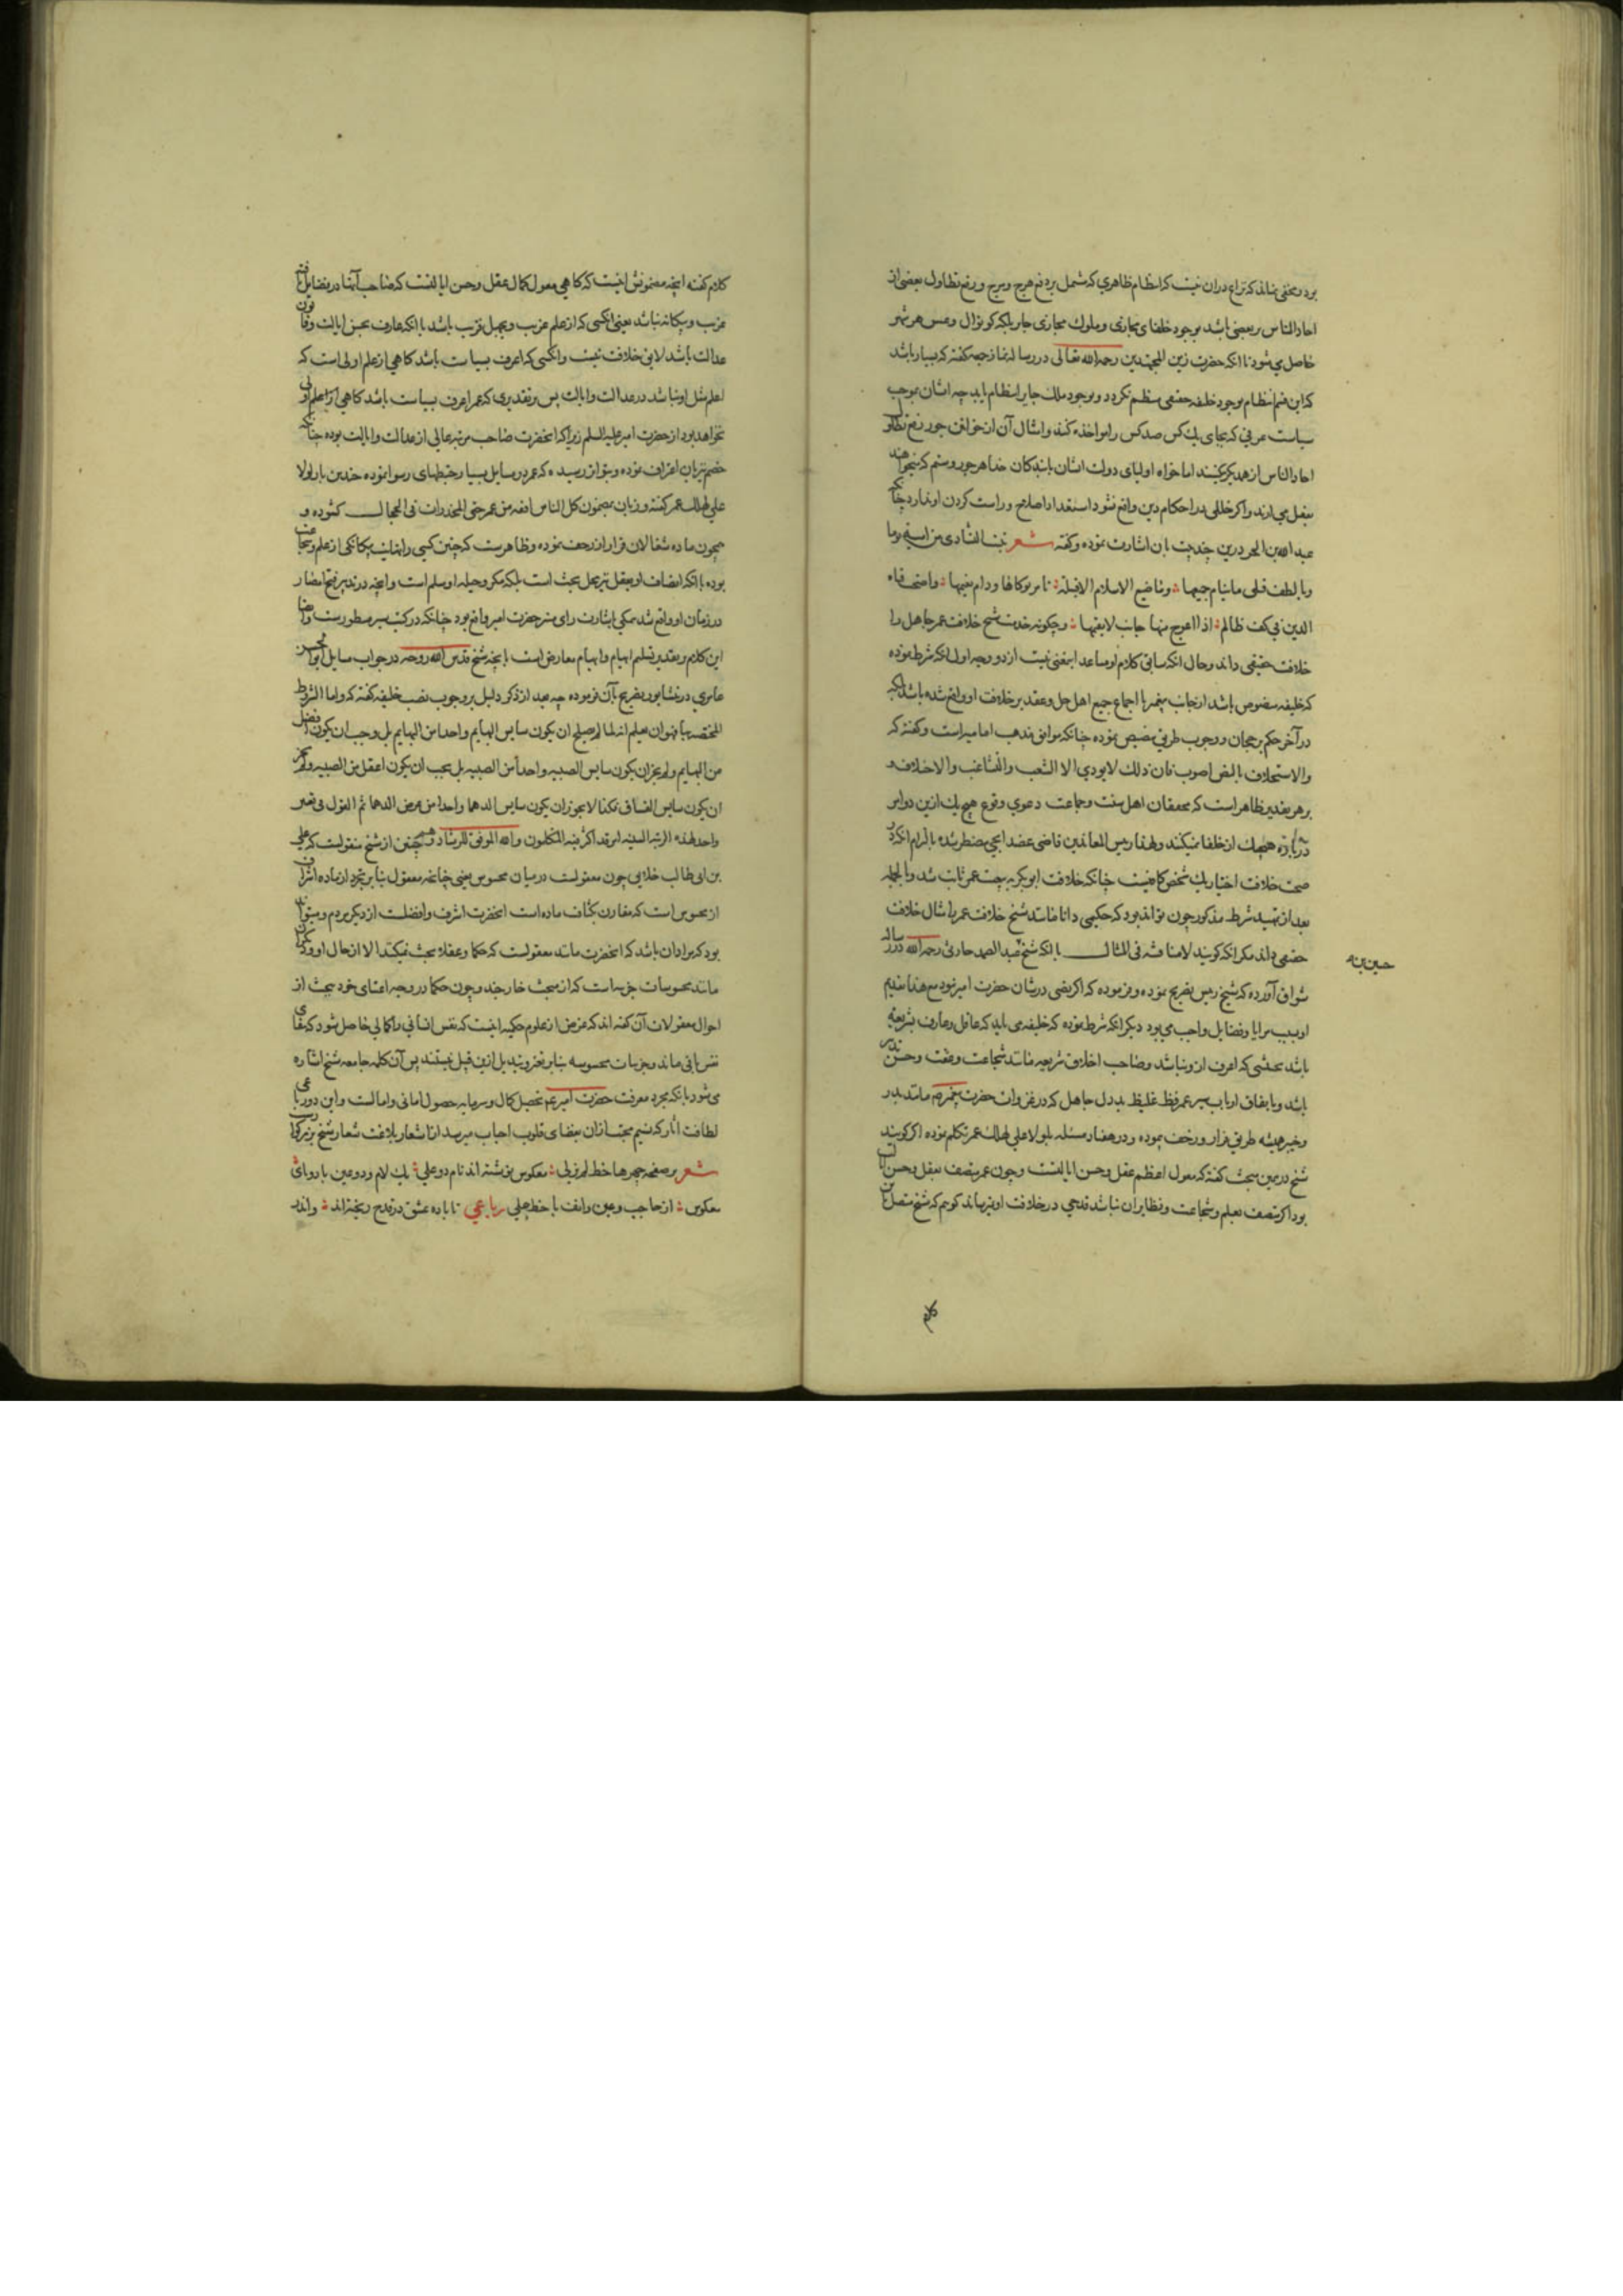 بود و مخفی نماند که نزاع در آن نیست که انتظام ظاهری که مشتمل بر دفع هرج و مرج و رفع تطاول بعضی از
احاد الناس بر بعضی باشد بوجود خلفای مجازی و ملوک مجازی جابر بلکه کوتوال و عسس هر شهر
حاصل می شود تا انکه حضرت زین المجتهدین رحمه الله تعالی در رساله نماز جمعه گفته که بسیار باشد
که این قسم انتظام بوجود خلیفه حقیقی منتظم نگردد و بوجود ملک جابر انتظام یابد چه ایشان بموجب
سیاست عرفی که بجای یک کس صد کس را مواخذه کنند و امثال آن از خوانین جور رفع تطاول
احاد الناس از همدیگر میکنند اما خواه اولیای دولت ایشان با بندگان خدا هر جور و ستم که میخواهند
بفعل می ارند و اگر خللی در احکام دین واقع شود استعداد اصلاح و راست کردن او ندارد چنانکه
عبد الله بن الحر درین چند بیت بان اشارت نموده و گفته شعر تبیت النشاوی من امیه نوما
وبالطف قتلی ما ینام حمیمها وما ضیع الاسلام الا قبیلة تامر نوکاها ودام نعیمها واضحت قناة
الدین فی کف ظالم اذا اعوج منها جانب لا یقیمها و چگونه حضرت شیخ خلافت عمر جاهل را
خلافت حقیقی داند و حال انکه سابق کلام او مساعد اینمعنی نیست از دو وجه اول انکه شرط نموده
که خلیفه منصوص باشد از جانب پیغمبر یا اجماع جمیع اهل حل و عقد بر خلافت او واقع شده باشد بلکه
در آخر حکم برجحان و وجوب طریق تنصیص نموده چنانکه موافق مذهب امامیه است و گفته که
والاستخلاف بالنص اصوب فان ذلک لا یودی الا الشعب والتشاغب والاختلاف و
بر هر تقدیر ظاهر است که محققان اهل سنت و جماعت دعوی وقوع هیچ یک ازین دو امر
درباره هیچیک از خلفا نمیکنند و لهذا رئیس المعاندین قاضی عضد ایجی مضطر شده بالزام انکه در
صحت خلافت اختیار یک شخص کافیست چنانکه خلافت ابو بکر به بیعت عمر ثابت شد و بالجمله
بعد از تمهید شرط مذکور چون تواند بود که حکیمی دانا مانند شیخ خلافت عمر یا مثال خلافت
حقیقی داند مگر انکه گویند لا مناقشه فی المثال با انکه شیخ عبد الصمد حارثی رحمه الله در رساله
آورده که شیخ رئیس تصریح نموده و فرموده که اگر نصی در شان حضرت امیر نبود مع هذا تقدیم
او بسبب مزایا و فضایل واجب می بود دیگر انکه شرط نموده که خلیفه می باید که عاقل و عارف بشریعه
باشد بحیثی که اعرف ازو نباشد و صاحب اخلاق شریعه مانند شجاعت و عفت و حسن تدبیر
باشد و باتفاق ارباب سیر عمر فظ غلیظ بددل جاهل که در غزوات حضرت پیغمبر مانند بدر
و خیبر همیشه طریق فرار و رخف نموده و در هفتاد مسئله بلولا علی لهلک عمر تکلم نموده اگر گویند
شیخ در همین مبحث گفته که معول اعظم عقل و حسن ایالتست و چون عمر متصف بعقل و حسن ایالت
بود اگر متصف بعلم و شجاعت و نظایر آن نباشد قدحی در خلافت او نیرساند گویم که شیخ متصل باین
کلام
کلام گفته انچه مضمونش اینست که گاهی معول کمال عقل و حسن ایالتست که صاحب آنها در فضایل باقیه
غریب و بیگانه نباشد یعنی انکسی که از علم غریب و بجهل قریب باشد با انکه عارف بحسن ایالت و قانون
عدالت باشد لایق خلافت نیست و انکسی که اعرف بسیاست باشد گاهی از علم اولی است که
اعلم مثل او نباشد در عدالت و ایالت پس بر تقدیری که عمر اعرف بسیاست باشد گاهی از اعلم اولی
نخواهد بود از حضرت امیر علیه السلم زیرا که انحضرت صاحب مرتبه عالی از عدالت و ایالت بوده چنانکه
خصم نیز بان اعتراف نموده و بتواتر رسیده که عمر در مسایل بسیار خبطهای رسوا نموده چندین بار لولا
علی لهلک عمر گفته و زبان بمضمون کل الناس افقه من عمر حتی المخدرات فی الحجال گشوده و
همچون ماده شغالان فرار از زحف نموده و ظاهرست که چنین کسی را نهایت بیگانگی از علم و شجاعت
بوده با انکه اتصاف او بعقل نیز محل بحث است بلکه مکر و حیله او مسلم است و انچه در تدبیر فتح امصار
در زمان او واقع شد همگی باشارت رای منیر حضرت امیر واقع بود چنانکه در کتب سیر مسطورست و ایضا
این کلام بتقدیر تسلیم ابهام و ایهام معارض است بانچه شیخ قدس الله روحه در جواب مسایل ابو الحسن
عامری در نشابور تصریح بآن فرموده چه بعد از ذکر دلیل بر وجوب نصب خلیفه گفته که واما الشروط
المختصه بها فهو ان یعلم انه لما لم یصلح ان یکون سایس البهایم واحدا من البهایم بل وجب ان یکون افضل
من البهایم ولم یجز ان یکون سایس الصبیه واحدا من الصبیه بل یجب ان یکون اعقل من الصبیه ولم یجز
ان یکون سایس الفساق فکذا لا یجوز ان یکون سایس الدهما واحدا من عرض الدهما ثم القول فی تعیین
واحد لهذه الرتبه السنیه امر قد اکثر فیه المتکلمون والله الموفق للرشاد و همچنین از شیخ منقولست که علی
بن ابی طالب خلایی چون معقولست در میان محسوس یعنی چنانچه معقول بنا بر تجرد از ماده اشرف
از محسوس است که مقارن کثافت ماده است انحضرت اشرف و افضلست از دیگر مردم و میتواند
بود که مراد ان باشد که انحضرت مانند معقولست که حکما و عقلا بحث نمیکنند الا از حال او و دیگران
مانند محسوسات جزییات که از مبحث خارجند و چون حکما در وجه اعتنای خود ببحث از
احوال معقولات آن گفته اند که غرض از علوم حکمیه اینست که نفس انسانی را کمالی حاصل شود که ببقای
نفس باقی ماند و جزییات محسوسه بنا بر تغیر و تبدیل ازین قبیل نیستند پس آن کلمه جامعه شیخ اشاره
می شود بانکه مجرد معرفت حضرت امیر تحصیل کمال و سرمایه حصول امانی و امالست و این دو رباعی
لطافت آثار که نسیم محبت از ان بفضای قلوب احباب میرسد از اشعار بلاغت شعار شیخ بزرگوارست
شعر بر صفحه چهره ها خط لم یزلی معکوس نوشته اند نام دو علی یک لام و دو عین با دو یای
معکوس از حاجب و عین و انف با خط جلی رباعی تا باده عشق در قدح ریخته اند و اندر